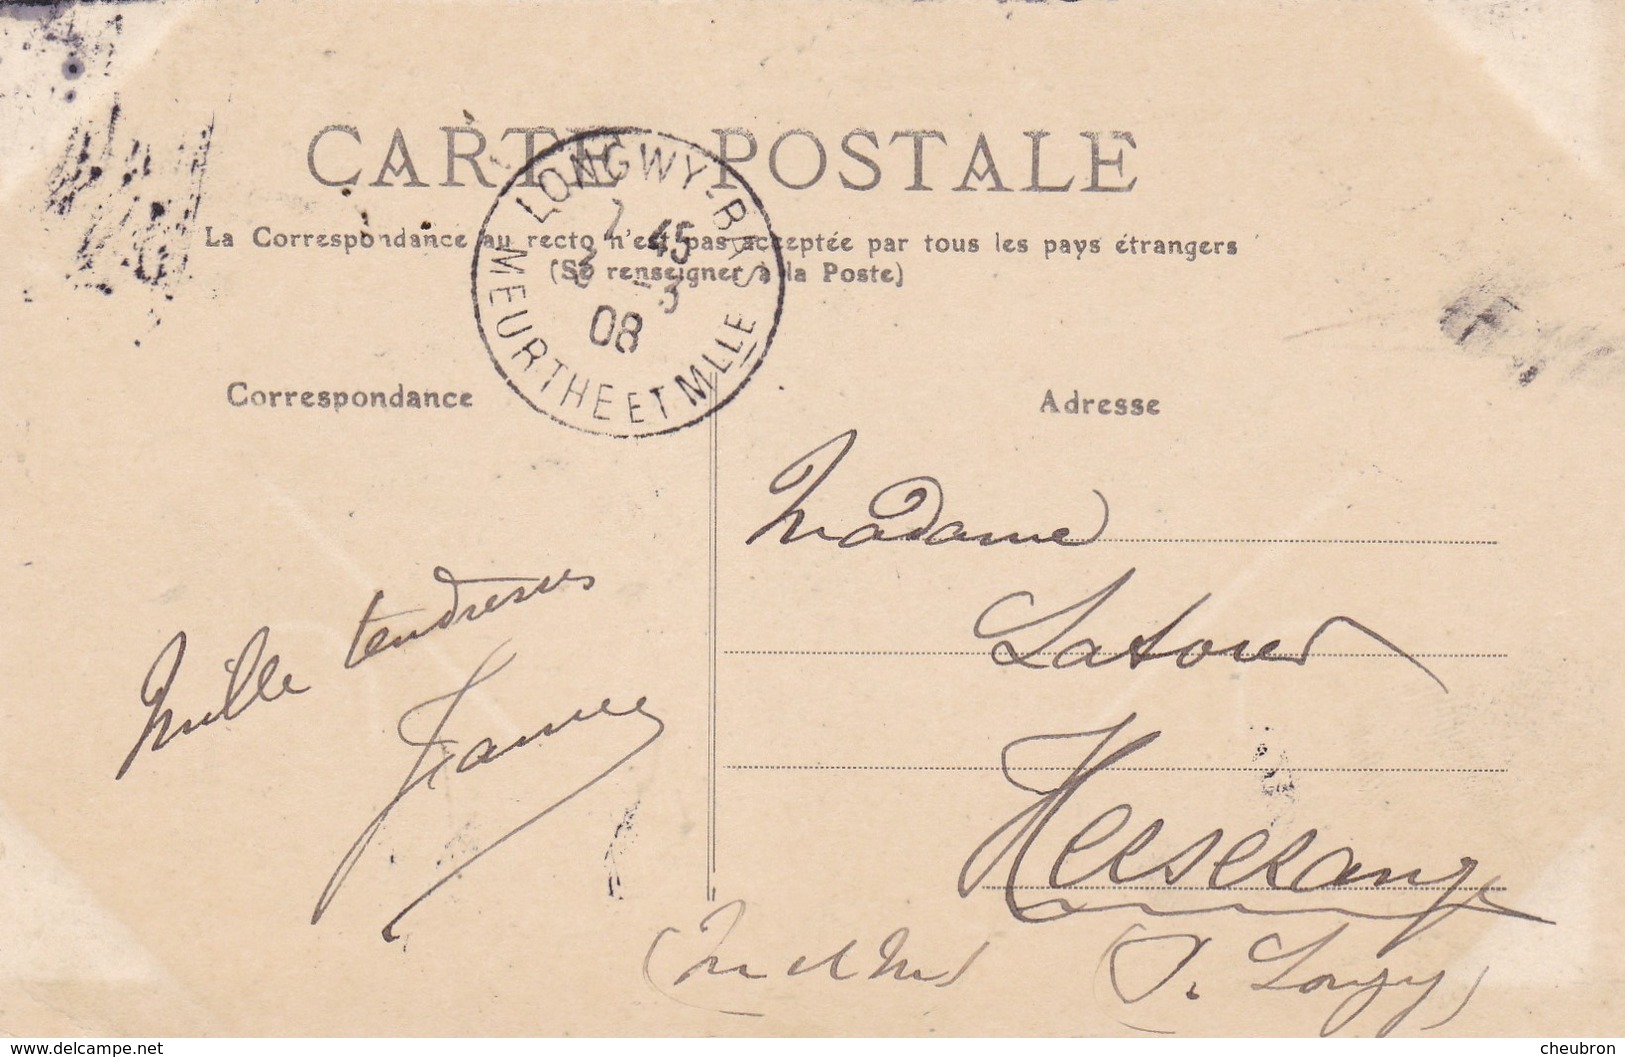 CARTE POSTALE
La Correspondance au recto n'est pas acceptée par tous les pays étrangers
(Se renseigner à la Poste)
LONGWY-BAS
7 45
3 -3
08
MEURTHE ET MLLE
Correspondance
Adresse
Madame
Latour
Herserange
(
) (P. Longwy)
Mille tendresses
www.delcampe.net
cheubron